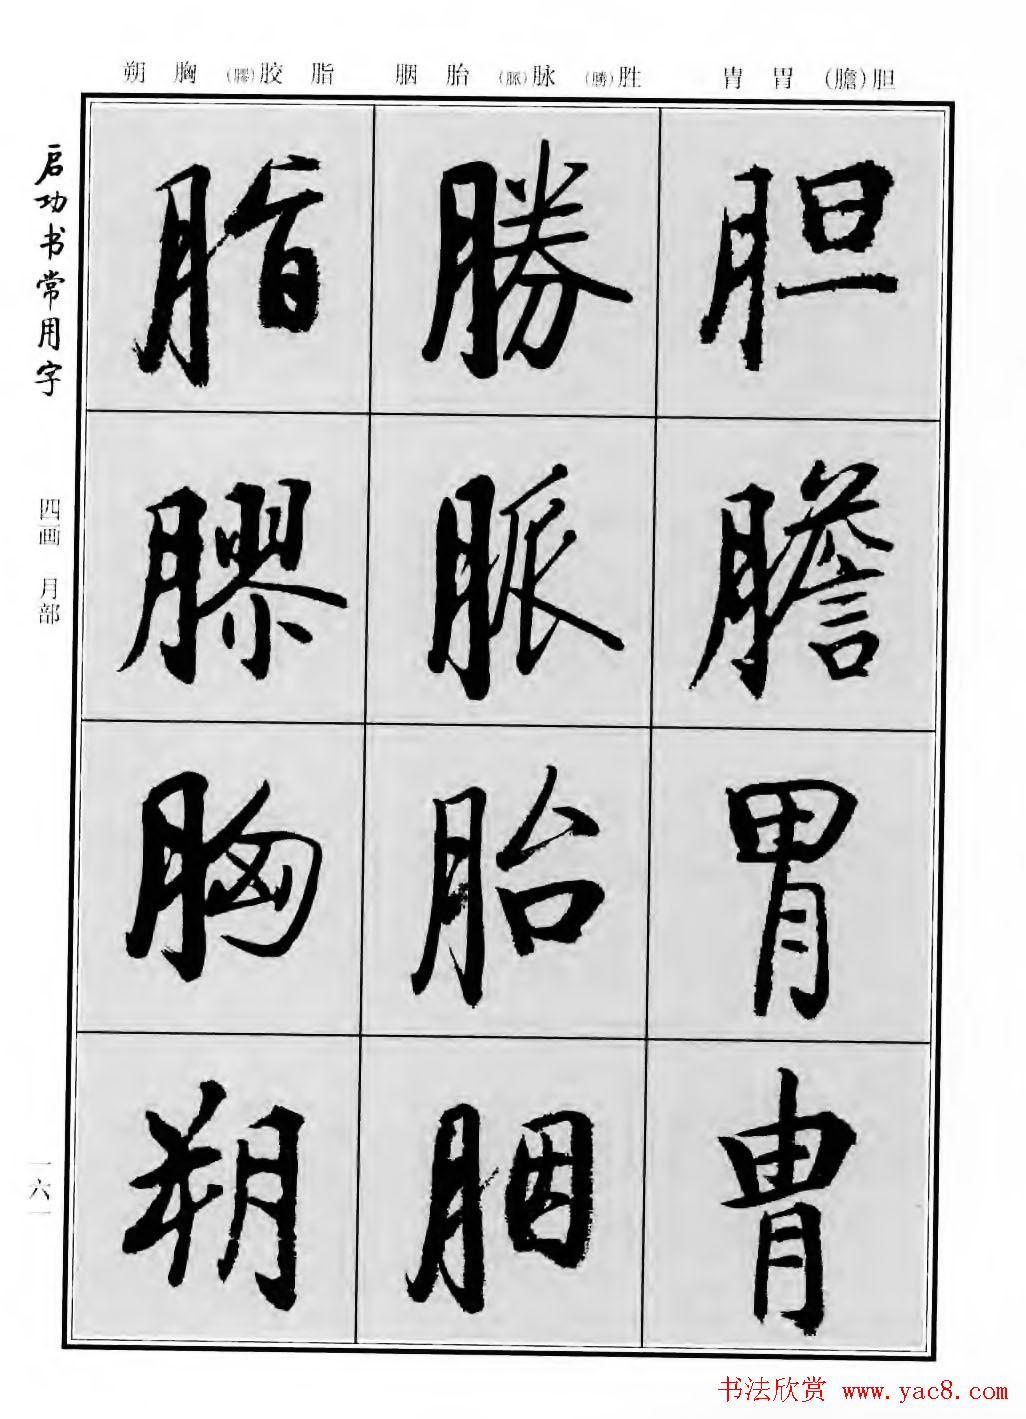 朔 胸 (膠)胶 脂 胭 胎 (脈)脉 (勝)胜 胄 胃 (膽)胆
启功书常用字
四画 月部
一六一
胆
膽
胃
胄
勝
脈
胎
胭
脂
膠
胸
朔
书法欣赏 www.yac8.com